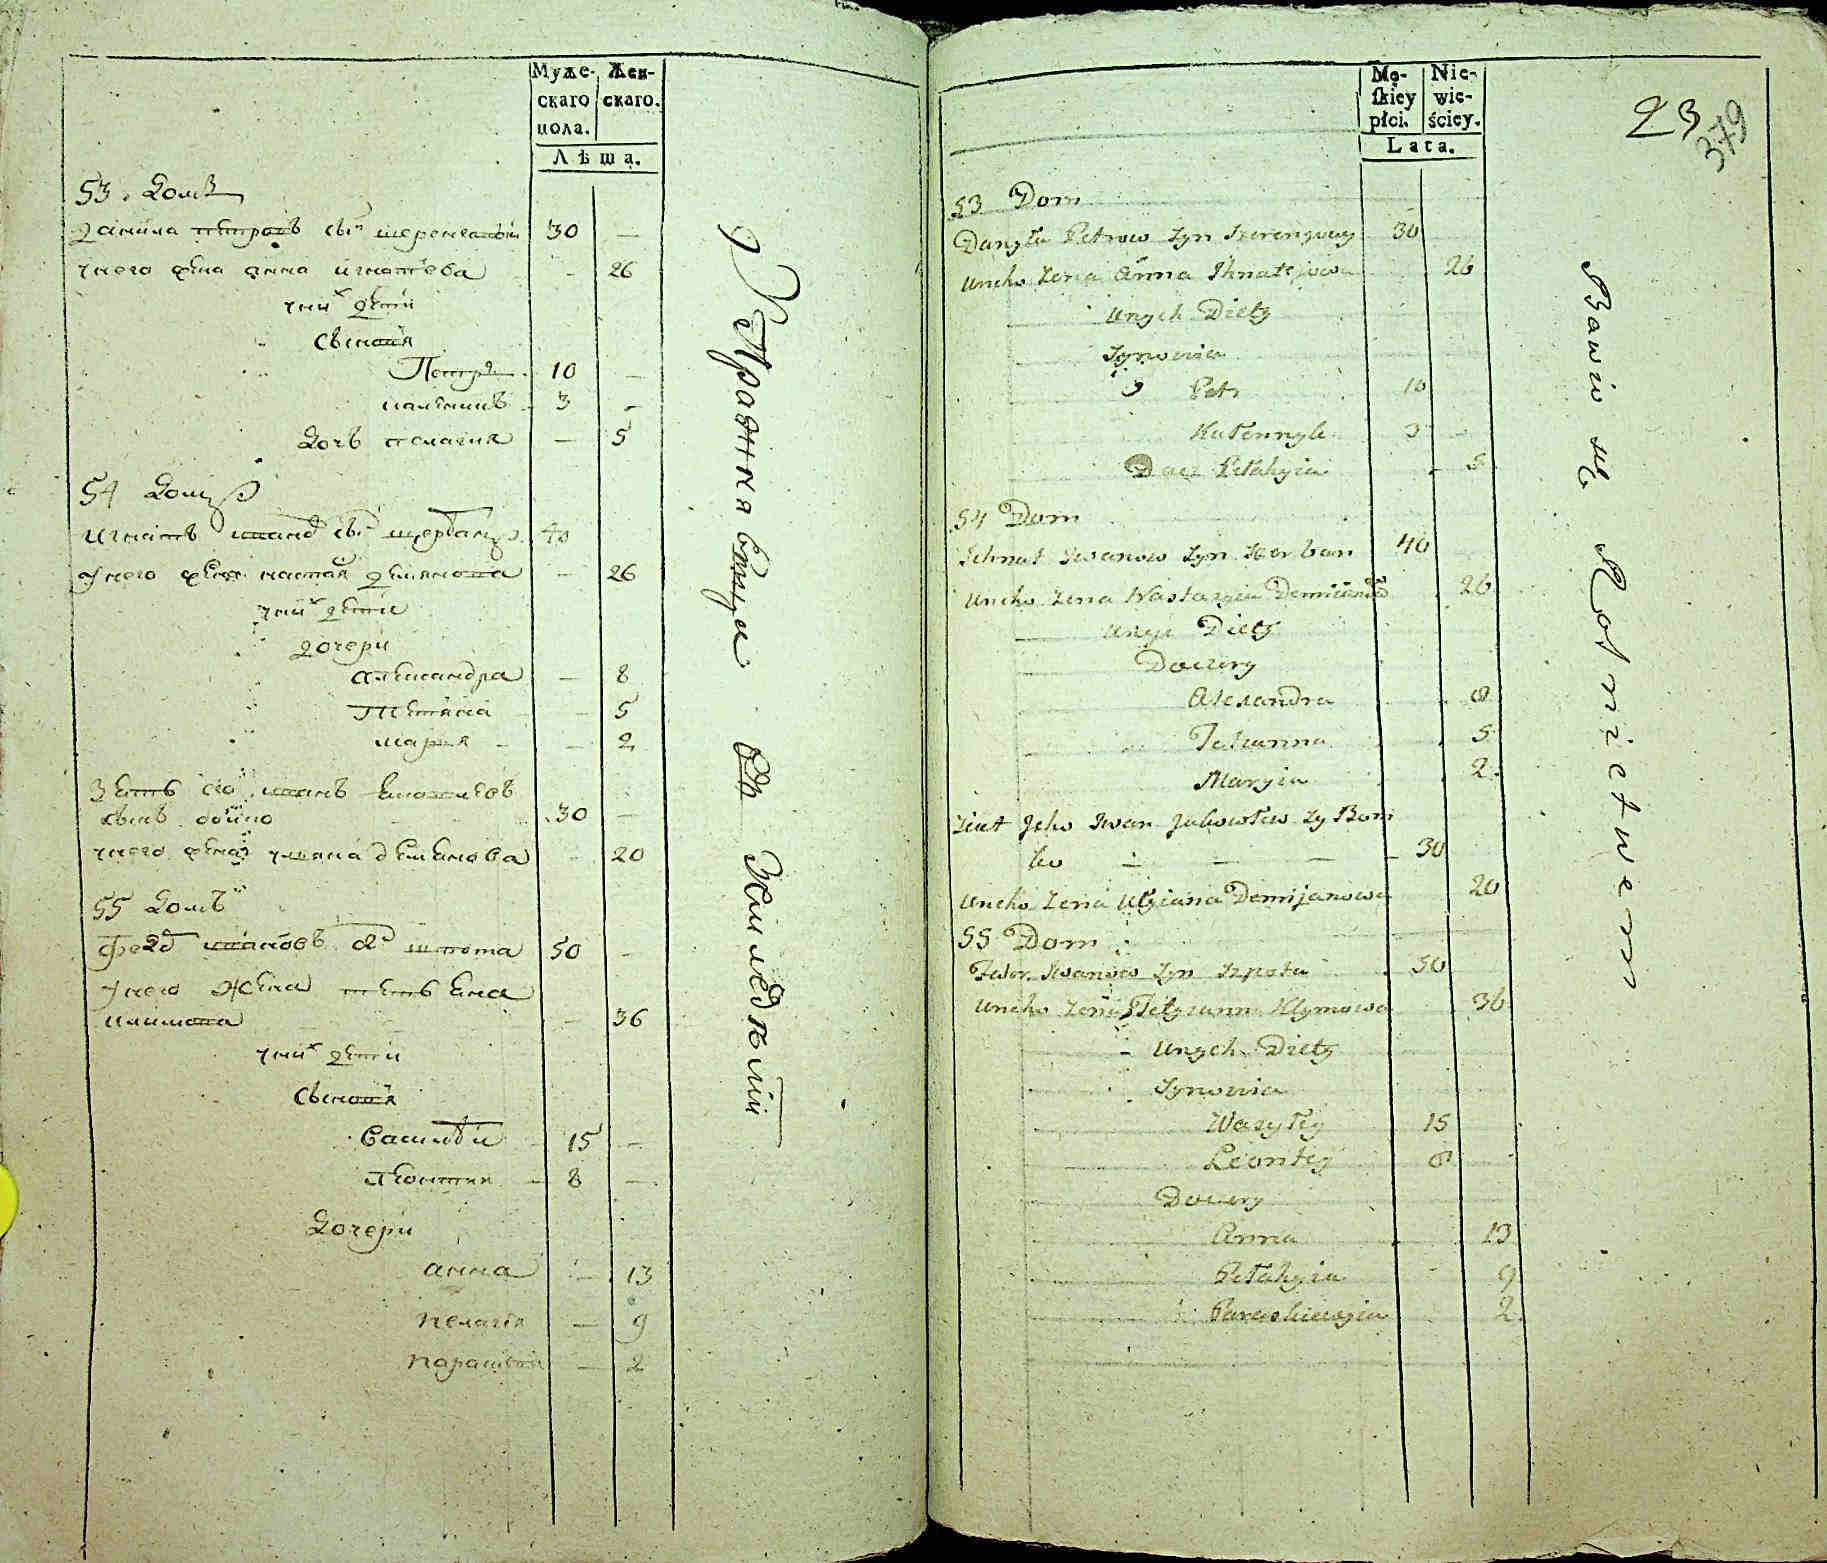 Муже-
скаго
пола.
Жен-
скаго.
Лѣта.
53. Домъ
Данила Петровъ сынъ 30 —
Унего жена Анна Игнатѣева - 26
Унихъ дѣти
Сыновя
Петръ 10 —
3 -
Дочь Пелагия — 5
54 Домъ
Игнатъ Иванов сынъ Щербанъ 40
Унего жена Настася Демянова — 26
Унихъ дѣти
дочери
Александра — 8
Тетяна — 5
Мария — 2
Зеть его Иванъ
сынъ Бойко 30 —
Унего жена Уляна Деменова - 20
55 Домъ
Федор Ивановъ сынъ Шпота 50 -
Унего жена
Климова — 36
Унихъ дѣти
Сыновя
Василѣй 15 —
Леонтия 8 —
Дочери
Анна — 13
Пелагия — 9
Парасковия — 2
Упражняевъница въ Земледѣлии
Mę-
skiey
płci.
Nie-
wie-
ściey.
Lata.
23
379
53 Dom
Danyłu Petrow Syn 30
Uneho Zena Anna Ihnatejowa 26
Unych Diety
Synowia
Petr 10
3
Docz Pełahyia 5
54 Dom
Ihnat Iwanow Syn Szerban 40
Uneho Zena Nastazyia Demijanowa 26
Unych Diety
Doczery
Alexandra 8
Tetianna 5
Maryia 2
Ziat Jeho Iwan Jakowlew Sy Boy
ko — — — 30
Uneho Zena Ulyiana Demijanowa 20
55 Dom
Fedor Iwanow Syn Szpota 50
Uneho Zena Klymowa 36
Unych Diety
Synowia
Wasyley 15
Leontey 8
Doczery
Anna 13
Pełahyia 9
Paraskiewyia 2
Bawio się Rolnictwem